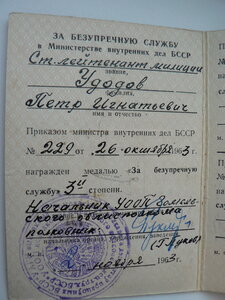 ЗА БЕЗУПРЕЧНУЮ СЛУЖБУ
в Министерстве внутренних дел БССР
Ст. лейтенант милиции
звание,
Удодов
фамилия,
Петр Игнатьевич
имя и отчество
Приказом министра внутренних дел БССР
№ 229 от 26 октября 1963 г.
награжден медалью «За безупречную
службу» 3й степени.
Начальник УООП Гомель-
ского облисполкома
полковник
2 ноября 1963 г.